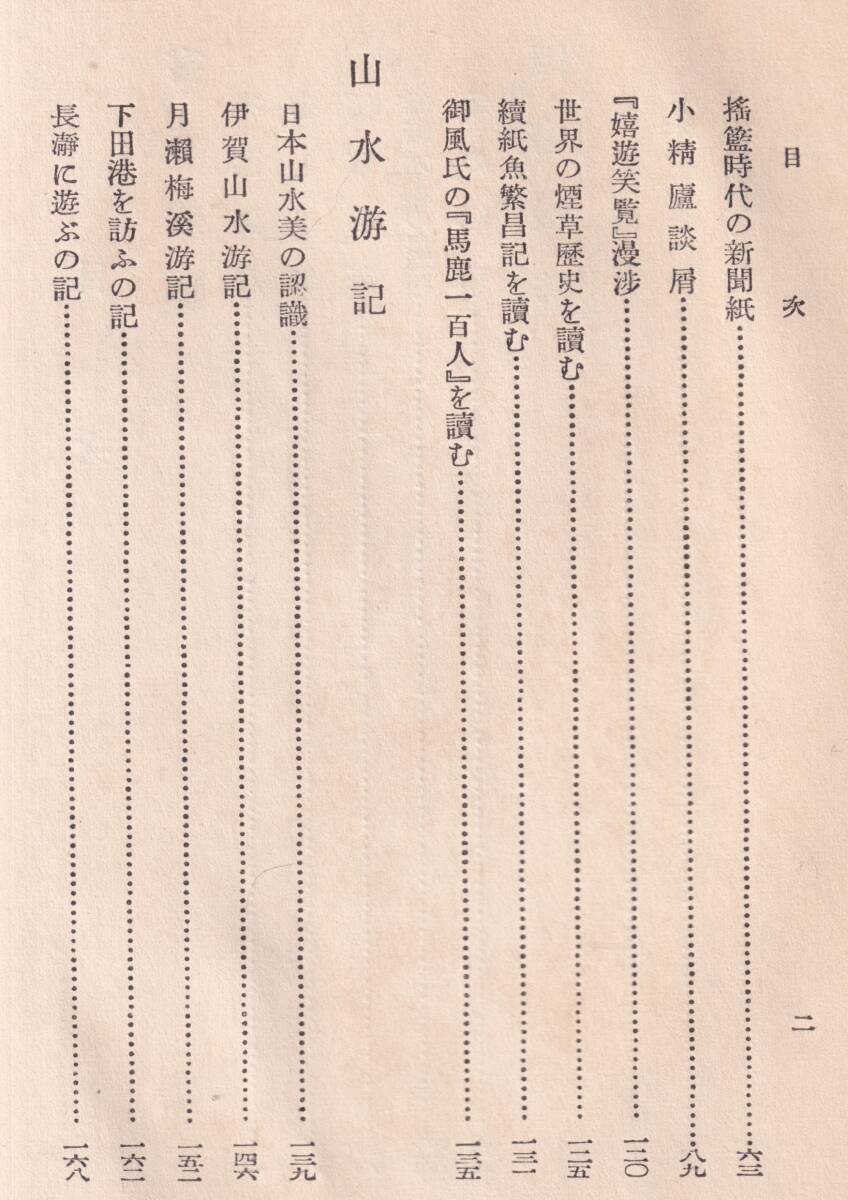 目次
二
搖籃時代の新聞紙……六三
小精廬談屑……八九
『嬉遊笑覽』漫涉……一二〇
世界の煙草歷史を讀む……一二五
續紙魚繁昌記を讀む……一三一
御風氏の『馬鹿一百人』を讀む……一三五
山水游記
日本山水美の認識……一三九
伊賀山水游記……一四六
月瀨梅溪游記……一五二
下田港を訪ふの記……一六二
長瀞に遊ぶの記……一六八